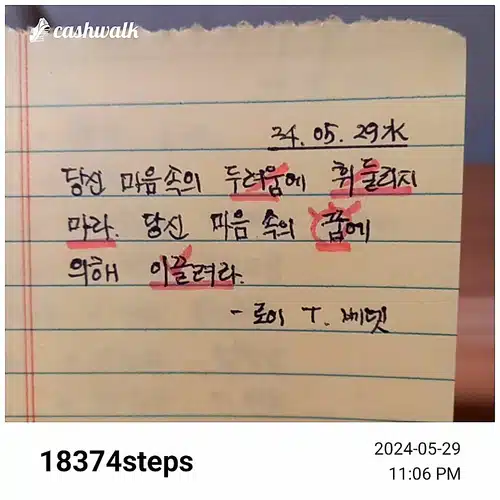 cashwalk
24. 05. 29 水
당신 마음속의 두려움에 휘둘리지
마라. 당신 마음 속의 꿈에
의해 이끌려라.
- 로이 T. 베넷
18374steps
2024-05-29
11:06 PM